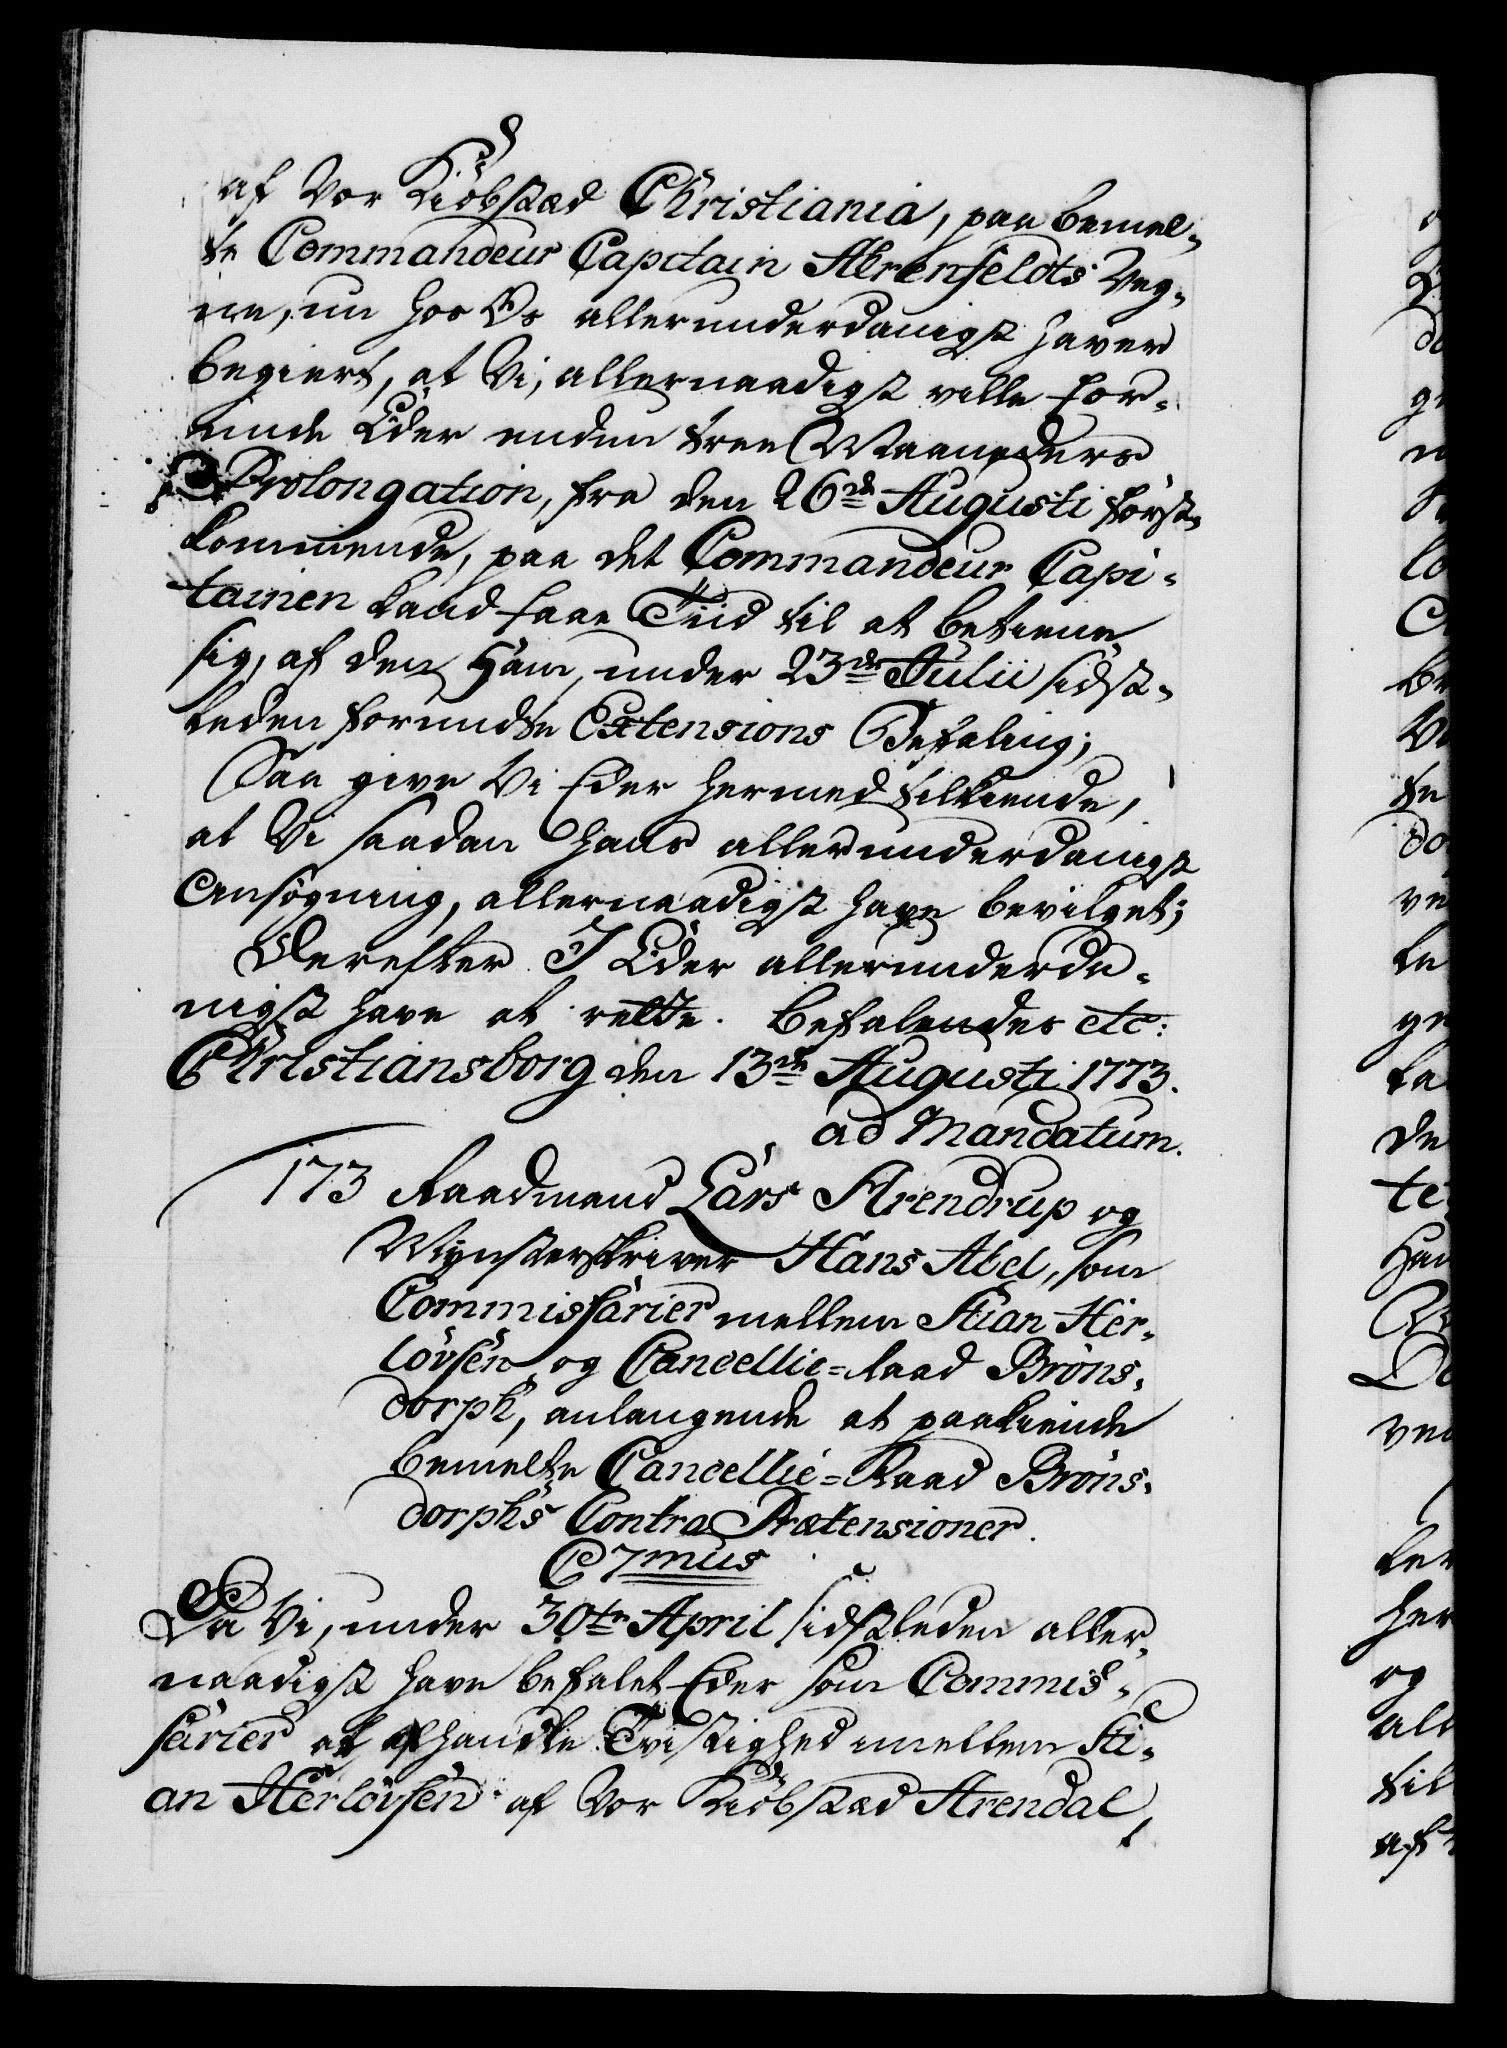 af Vor Kiøbstæd Christiania, paa bemel-
te Commandeur Capitain Ahrenfeldts Veg-
ne, nu hos Os allerunderdanigst haver
begiert, at Vi, allernaadigst ville for-
unde Eder enden tree Maaneders
Prolongation, fra den 26de Augusti først-
kommende, paa det Commandeur Capi-
tainen kand faae Tiid til at betiene
sig, af den Ham, under 23de Julii sidst-
leden forundte Extensions Befaling;
Saa give Vi Eder hermed tilkiende,
at Vi saadan Hans allerunderdanigst
Ansøgning, allernaadigst have bevilget;
Derefter I Eder allerunderda-
nigst have at rette. Befalendes etc:
Christiansborg den 13de Augusti 1773.
ad Mandatum.
173 Raadmand Lars Arendrup og
Mynsterskriver Hans Abel, som
Commissarier mellem Stian Her-
lovsen og Cancellie-Raad Brøns-
dorph, anlangende at paakiende
bemelte Cancellie-Raad Brøns-
dorphs Contra Prætensioner.
C7mus
Da Vi, under 30te April sidstleden aller-
naadigst have befalet Eder som Commis-
sarier at afhandle Tvistighed imellem Sti-
an Herlovsen af Vor Kiøbstæd Arendal,